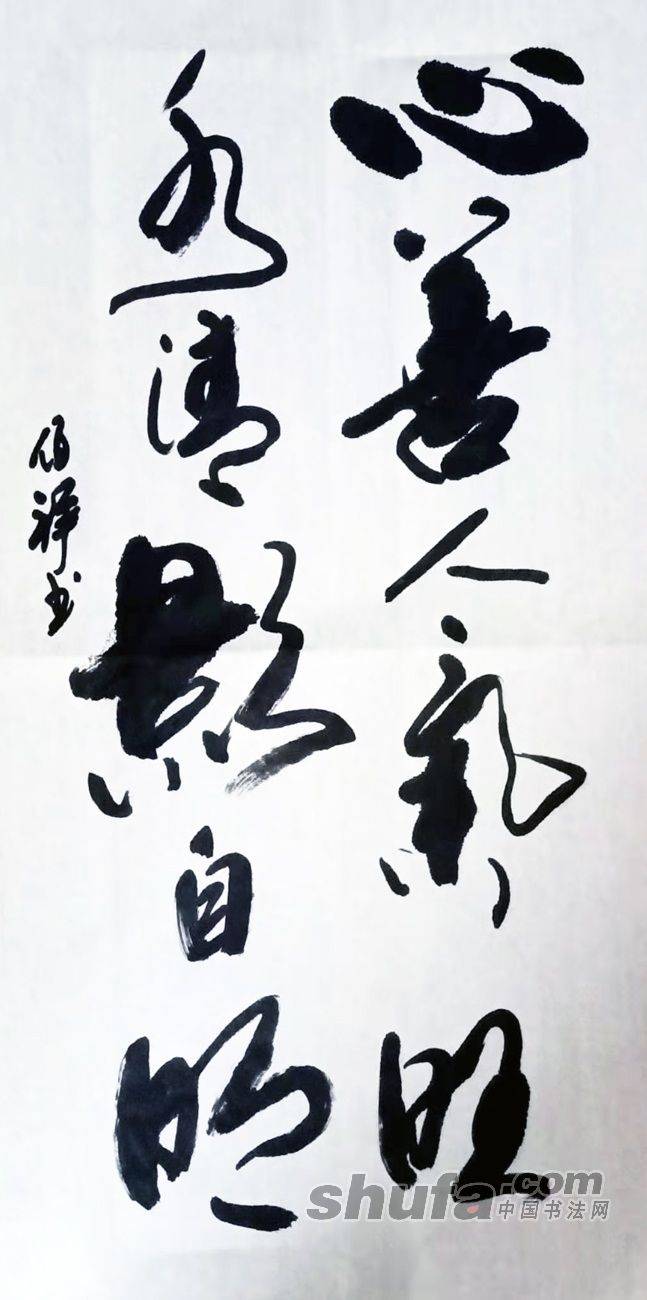 心善人氣旺
水清影自明
伯祥书
shufa.com
中国书法网